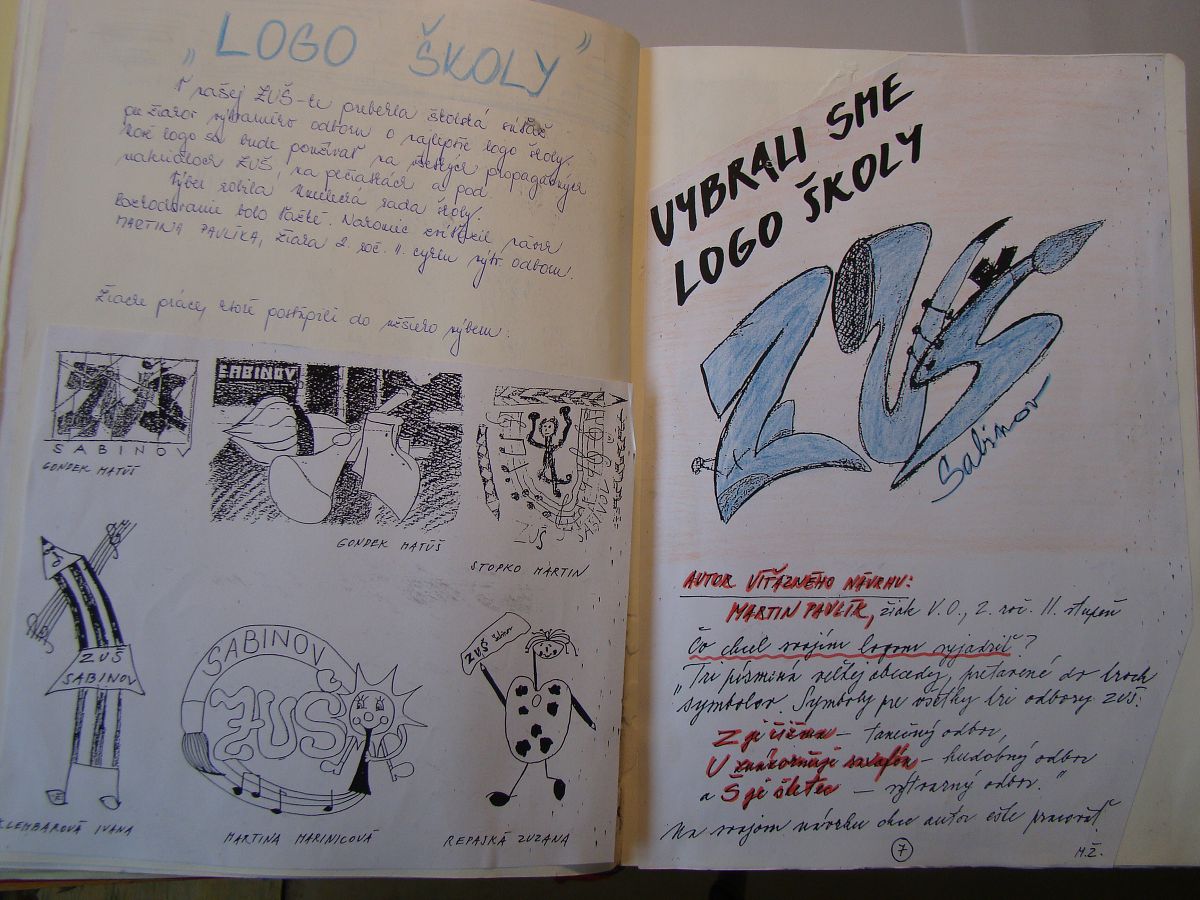 „LOGO ŠKOLY"
V našej ZUŠ-ke prebehla školská súťaž
pre žiakov výtvarného odboru o najlepšie logo školy.
Toto logo sa bude používať na všetkých propagačných
materiáloch ZUŠ, na pečiatkách a pod.
Výber robila Umelecká rada školy.
Rozhodovanie bolo ťažké. Nakoniec zvíťazil návrh
MARTINA PAVLÍKA, žiaka 2. roč. II. cyklu výtv. odboru.
Žiacke práce, ktoré postúpili do užšieho výberu:
ZUŠ
SABINOV
GONDEK MATÚŠ
SABINOV
GONDEK MATÚŠ
ZUŠ
STOPKO MARTIN
ZUŠ
SABINOV
KLEMBAROVÁ IVANA
SABINOV
ZUŠ
MARTINA MARINICOVÁ
ZUŠ Sabinov
REPASKÁ ZUZANA
VYBRALI SME
LOGO ŠKOLY
ZUŠ
Sabinov
AUTOR VÍŤAZNÉHO NÁVRHU:
MARTIN PAVLÍK, žiak V.O., 2. roč. II. stupeň
Čo chcel svojím logom vyjadriť?
"Tri písmená veľkej abecedy, pretavené do troch
symbolov. Symboly pre všetky tri odbory ZUŠ.
Z je čižma – tanečný odbor,
U znázorňuje saxafón – hudobný odbor
a Š je štetec – výtvarný odbor."
Na svojom návrhu chce autor ešte pracovať.
7
M.Ž.